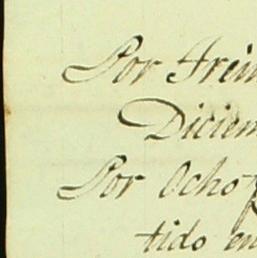 Por Trein
Diciem
Por Ocho p
tido en